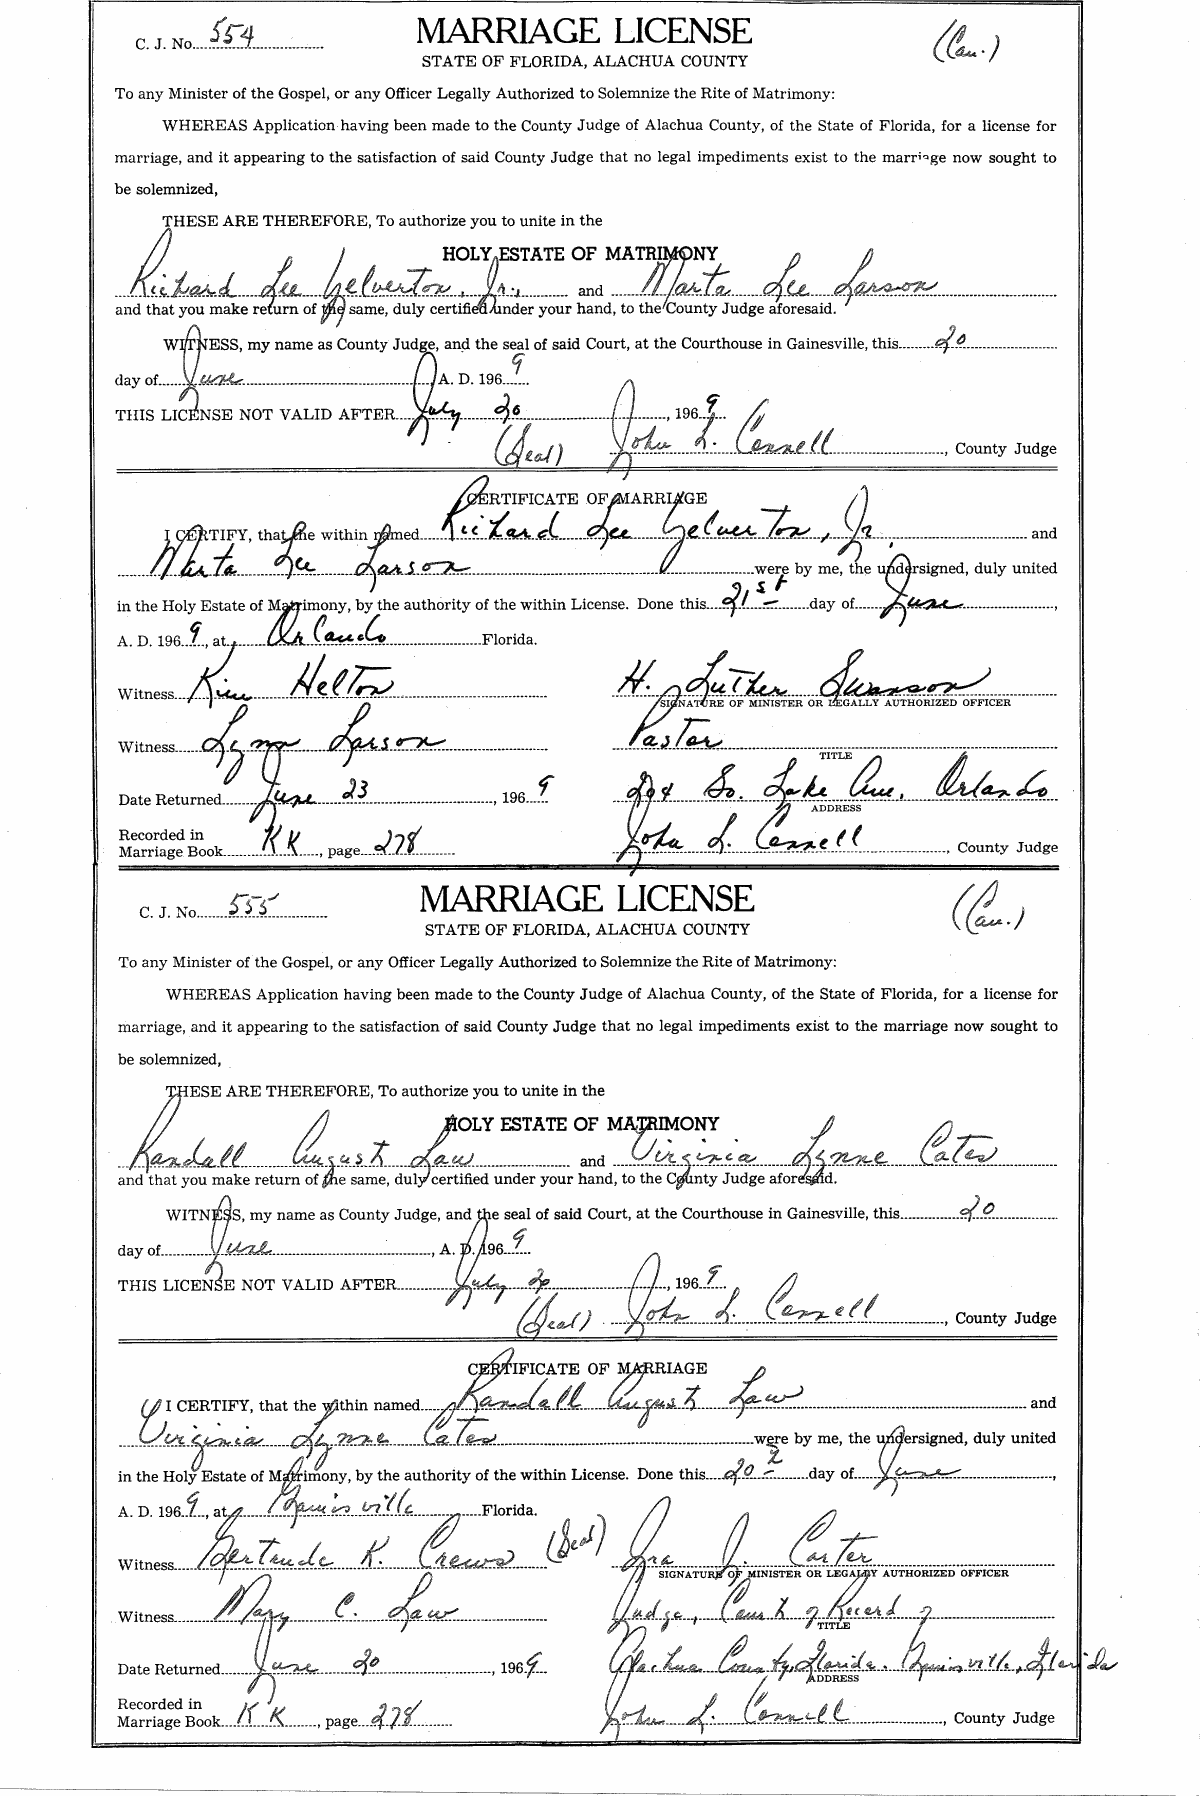 C. J. No. 554 MARRIAGE LICENSE (Cau.)
STATE OF FLORIDA, ALACHUA COUNTY
To any Minister of the Gospel, or any Officer Legally Authorized to Solemnize the Rite of Matrimony:
WHEREAS Application having been made to the County Judge of Alachua County, of the State of Florida, for a license for
marriage, and it appearing to the satisfaction of said County Judge that no legal impediments exist to the marriage now sought to
be solemnized,
THESE ARE THEREFORE, To authorize you to unite in the
HOLY ESTATE OF MATRIMONY
Richard Lee Yelverton, Jr., and Marta Lee Larson
and that you make return of the same, duly certified under your hand, to the County Judge aforesaid.
WITNESS, my name as County Judge, and the seal of said Court, at the Courthouse in Gainesville, this 20
day of June A. D. 1969
THIS LICENSE NOT VALID AFTER July 20, 1969
(Seal) John L. Connell, County Judge
CERTIFICATE OF MARRIAGE
I CERTIFY, that the within named Richard Lee Yelverton, Jr. and
Marta Lee Larson were by me, the undersigned, duly united
in the Holy Estate of Matrimony, by the authority of the within License. Done this 21st day of June,
A. D. 1969, at Orlando Florida.
Witness Kim Helton H. Luther Swanson
SIGNATURE OF MINISTER OR LEGALLY AUTHORIZED OFFICER
Witness Lynn Larson Pastor
TITLE
Date Returned June 23, 1969 204 So. Lake Ave. Orlando
ADDRESS
Recorded in
Marriage Book KK, page 278 John L. Connell, County Judge
C. J. No. 555 MARRIAGE LICENSE (Cau.)
STATE OF FLORIDA, ALACHUA COUNTY
To any Minister of the Gospel, or any Officer Legally Authorized to Solemnize the Rite of Matrimony:
WHEREAS Application having been made to the County Judge of Alachua County, of the State of Florida, for a license for
marriage, and it appearing to the satisfaction of said County Judge that no legal impediments exist to the marriage now sought to
be solemnized,
THESE ARE THEREFORE, To authorize you to unite in the
HOLY ESTATE OF MATRIMONY
Randall August Law and Virginia Lynne Cates
and that you make return of the same, duly certified under your hand, to the County Judge aforesaid.
WITNESS, my name as County Judge, and the seal of said Court, at the Courthouse in Gainesville, this 20
day of June, A. D. 1969
THIS LICENSE NOT VALID AFTER July 20, 1969
(Seal) John L. Connell, County Judge
CERTIFICATE OF MARRIAGE
I CERTIFY, that the within named Randall August Law and
Virginia Lynne Cates were by me, the undersigned, duly united
in the Holy Estate of Matrimony, by the authority of the within License. Done this 20th day of June,
A. D. 1969, at Gainesville Florida.
Witness Gertrude K. Crews (Seal) Ira J. Carter
SIGNATURE OF MINISTER OR LEGALLY AUTHORIZED OFFICER
Witness Mary C. Law Judge, Court of Record of
TITLE
Date Returned June 20, 1969 Alachua County, Florida. Gainesville, Florida
ADDRESS
Recorded in
Marriage Book KK, page 278 John L. Connell, County Judge